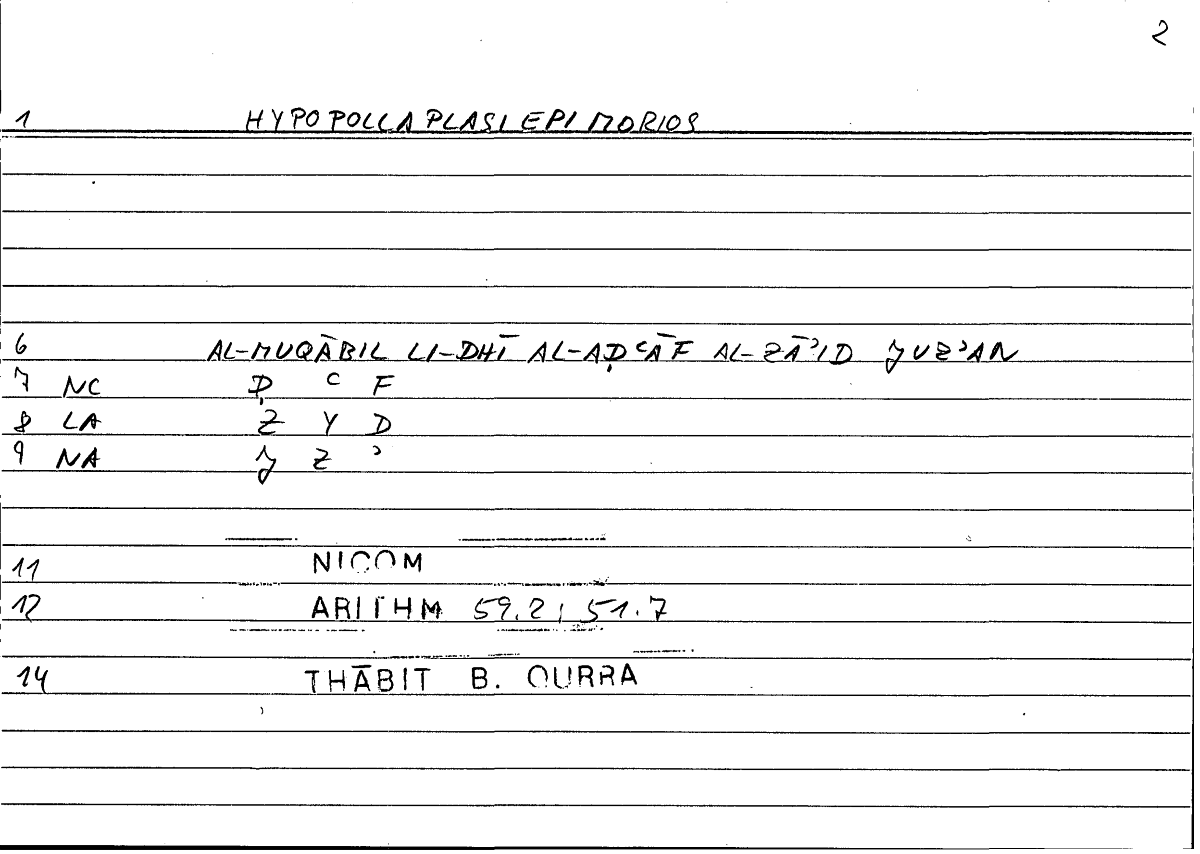 2
1 HYPOPOLLAPLASIEPIMORIOS
6 AL-MUQĀBIL LI-DHĪ AL-AḌʿĀF AL-ZĀʾID ǦUZʾAN
7 NC Ḍ ʿ F
8 LA Z Y D
9 NA Ǧ Z ʾ
11 NICOM
12 ARITHM 59.2; 51.7
14 THĀBIT B. QURRA